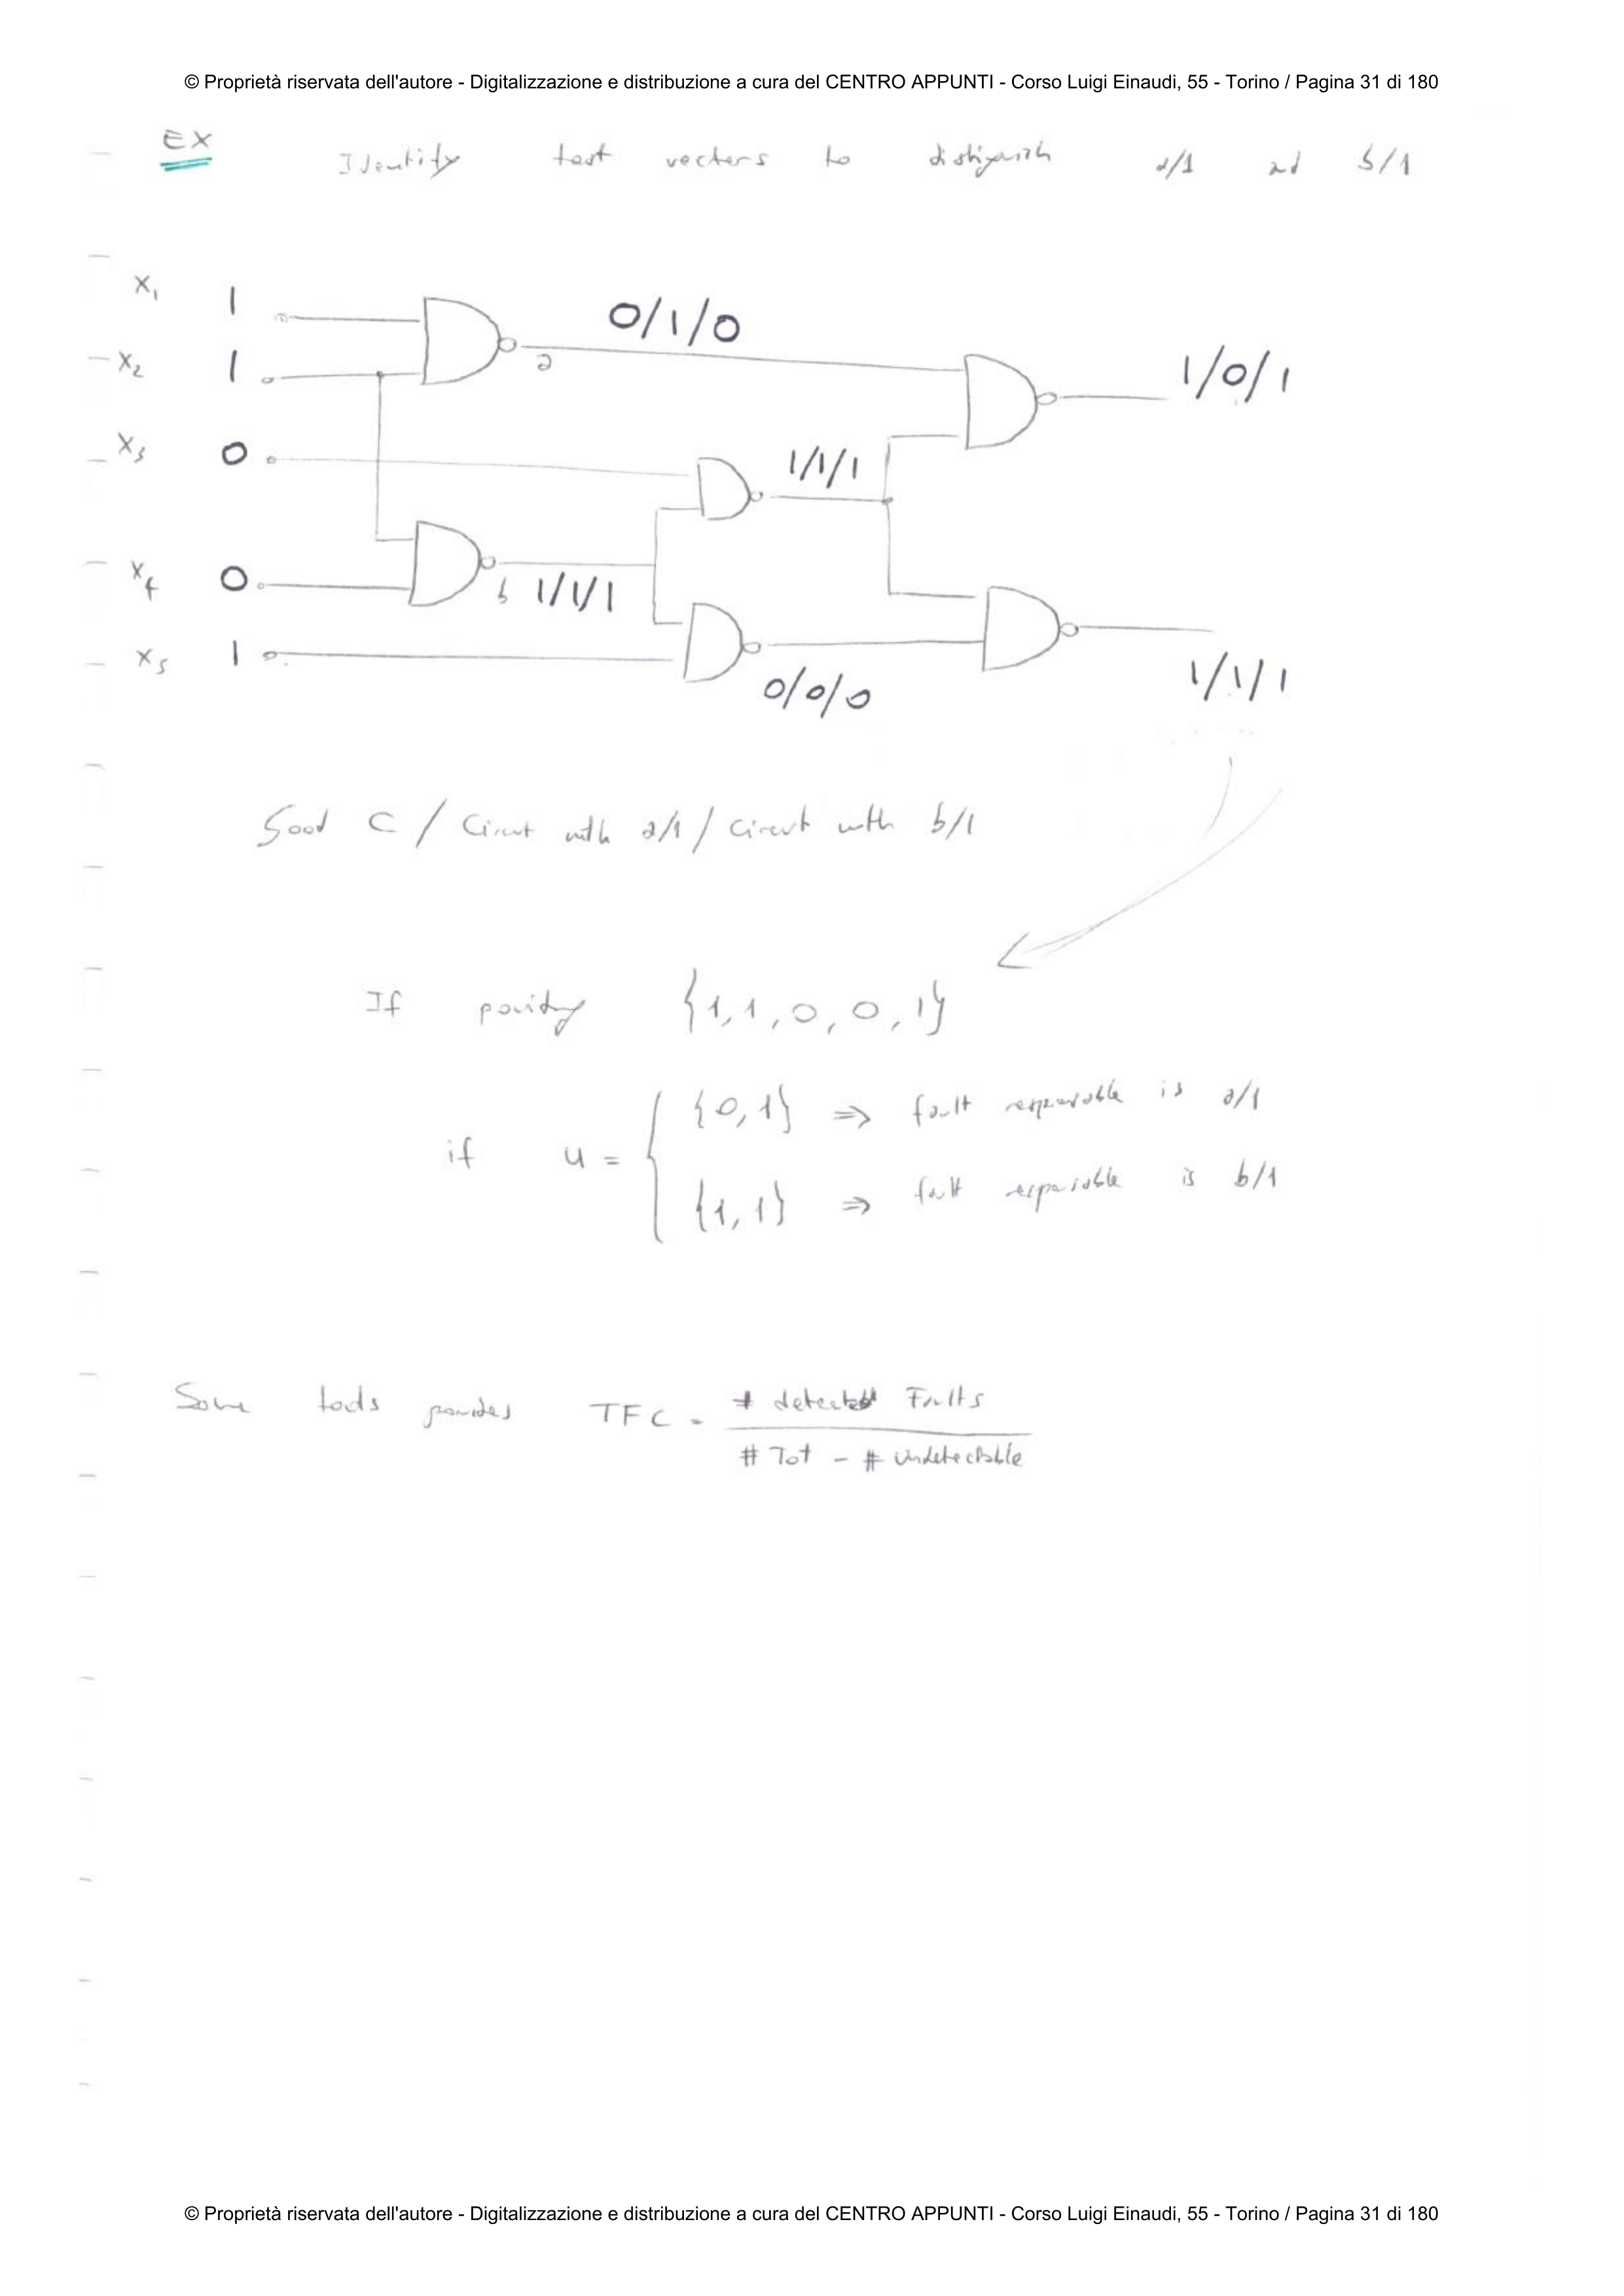 © Proprietà riservata dell'autore - Digitalizzazione e distribuzione a cura del CENTRO APPUNTI - Corso Luigi Einaudi, 55 - Torino / Pagina 31 di 180
EX
Identify test vectors to a/1 ad b/1
X1 1
0/1/0
X2 1
a
1/0/1
X3 0
1/1/1
X4 0
b 1/1/1
X5 1
0/0/0
1/1/1
Good C / Circut with a/1 / circut with b/1
If {1,1,0,0,1}
if u = {0,1} ⇒ fault is a/1
{1,1} ⇒ fault is b/1
Some tools provides TFC = # detected Faults
# Tot - # undetectable
© Proprietà riservata dell'autore - Digitalizzazione e distribuzione a cura del CENTRO APPUNTI - Corso Luigi Einaudi, 55 - Torino / Pagina 31 di 180